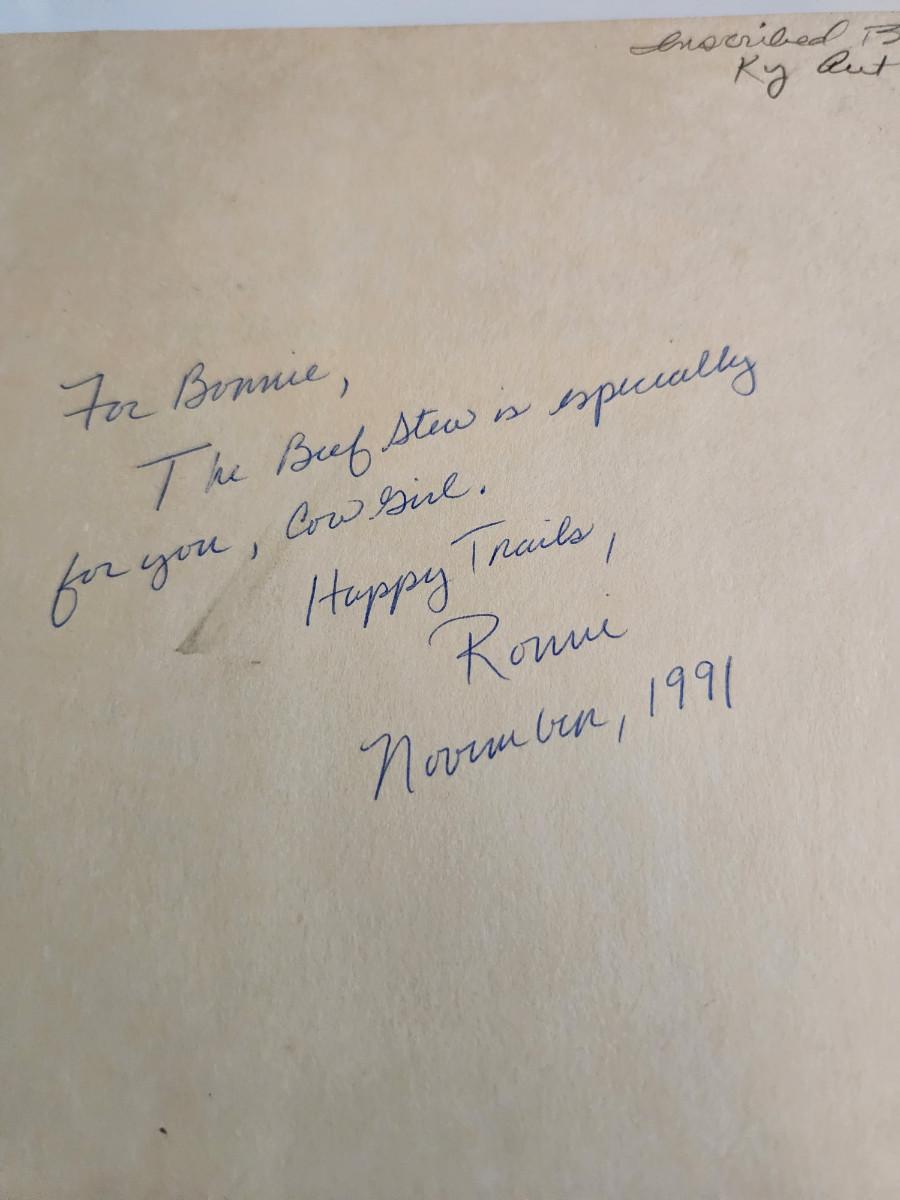 Inscribed B
Ky Aut
For Bonnie,
The Beef Stew is especially
for you, CowGirl.
Happy Trails,
Ronnie
November, 1991